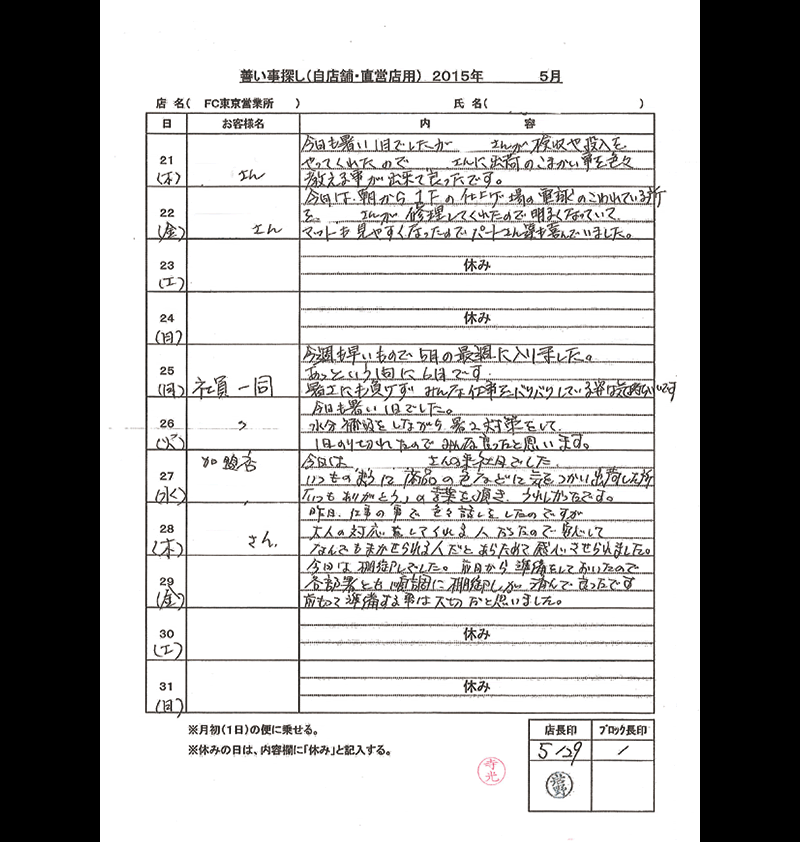 善い事探し(自店舗・直営店用) 2015年 5月
店 名( FC東京営業所 ) 氏 名( )
日 お客様名 内 容
21 (木) さん
今日も暑い1日でしたが さんが検収や投入を
やってくれたので さんに出荷のこまかい事を色々
教える事が出来て良ったです。
22 (金) さん
今日は朝から1Fの仕上げ場の電球のこわれている所
を、 さんが修理してくれたので明るくなっていて、
マットも見やすくなったのでパートさん達も喜んでいました。
23 (土) 休み
24 (日) 休み
25 (月) 社員一同
今週も早いもので5月の最週に入りました。
あっという間に6月です。
暑さにも負けず みんな仕事をバリバリしている姿は気持いいです
26 (火) 〃
今日も暑い1日でした。
水分補給をしながら 暑さ対策をして、
1日のり切れたので みんな良ったと思います。
27 (水) 加盟店
今日は さんの来社日でした
いつもの様に 商品の色などに気をつかい出荷した所
「いつもありがとう」の言葉を頂き、うれしかったです。
28 (木) さん
昨日、仕事の事で 色々話しをしたのですが
大人の対応をしてくれる人だったので 安心して
なんでもまかせられる人だと あらためて感心させられました。
29 (金)
今日は棚卸しでした。前日から準備をしておいたので
各部署とも順調に棚卸しが 済んで良ったです
前もって準備する事は大切だと思いました。
30 (土) 休み
31 (日) 休み
※月初(1日)の便に乗せる。
※休みの日は、内容欄に「休み」と記入する。
店長印 ブロック長印
5/29 /
寺光